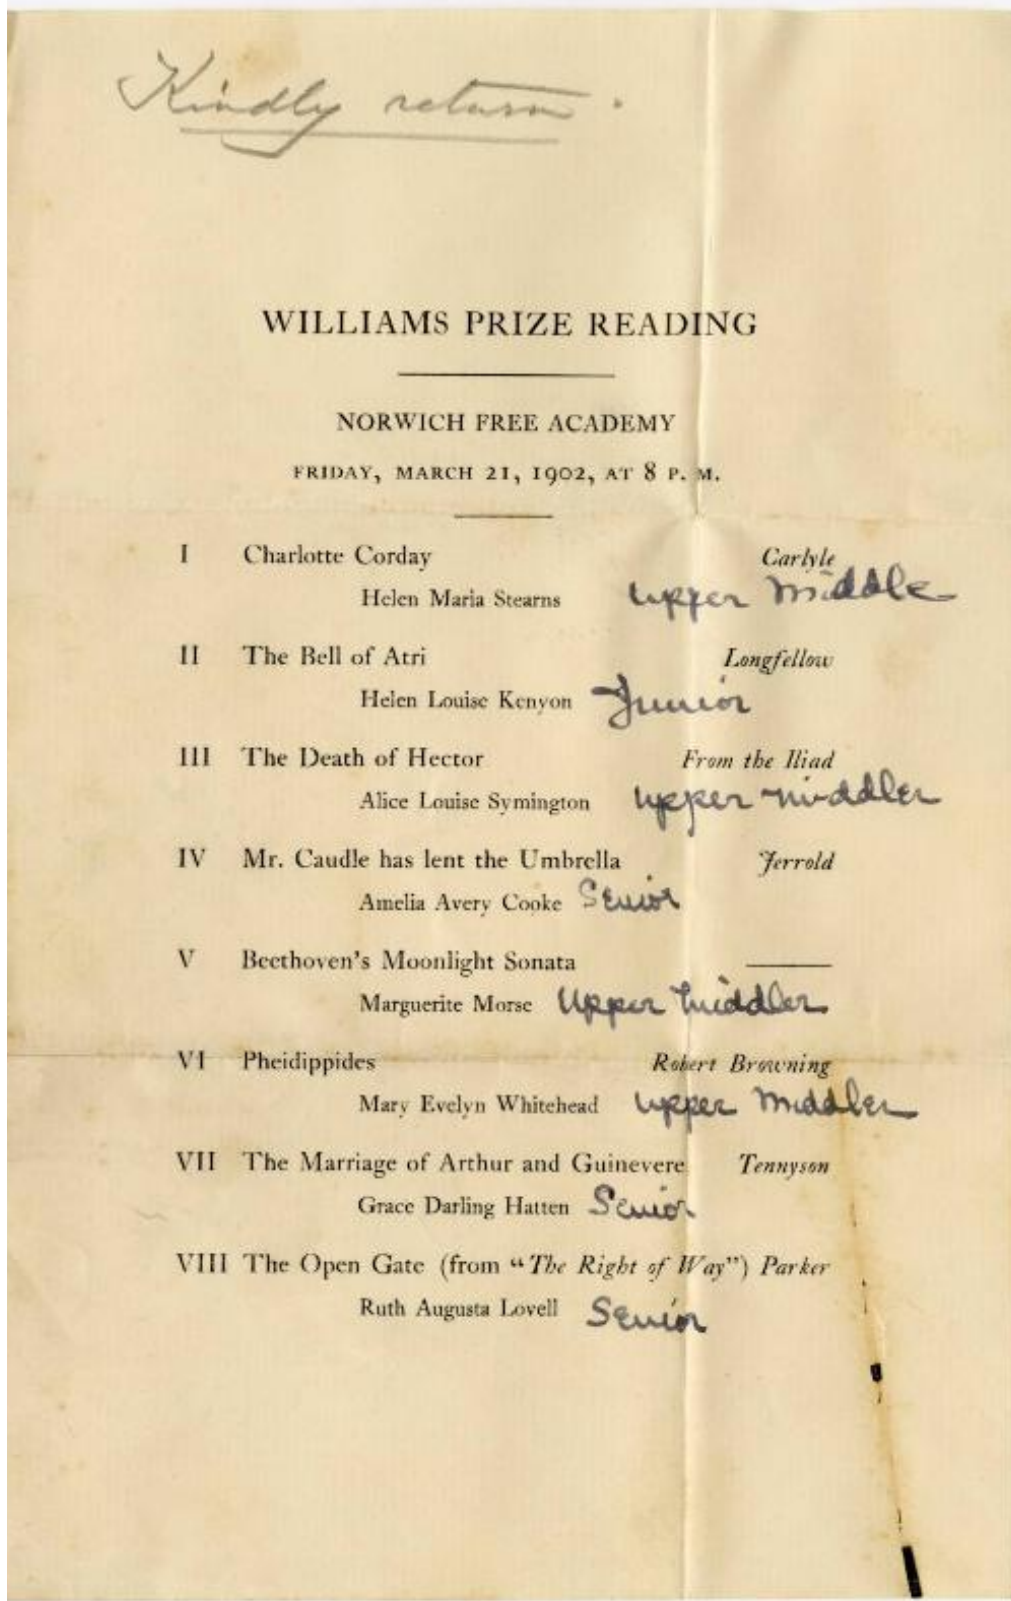 Kindly return.
WILLIAMS PRIZE READING
NORWICH FREE ACADEMY
FRIDAY, MARCH 21, 1902, AT 8 P. M.
I Charlotte Corday Carlyle
Helen Maria Stearns Upper Middle
II The Bell of Atri Longfellow
Helen Louise Kenyon Junior
III The Death of Hector From the Iliad
Alice Louise Symington Upper Middler
IV Mr. Caudle has lent the Umbrella Jerrold
Amelia Avery Cooke Senior
V Beethoven's Moonlight Sonata
Marguerite Morse Upper Middler
VI Pheidippides Robert Browning
Mary Evelyn Whitehead Upper Middler
VII The Marriage of Arthur and Guinevere Tennyson
Grace Darling Hatten Senior
VIII The Open Gate (from "The Right of Way") Parker
Ruth Augusta Lovell Senior